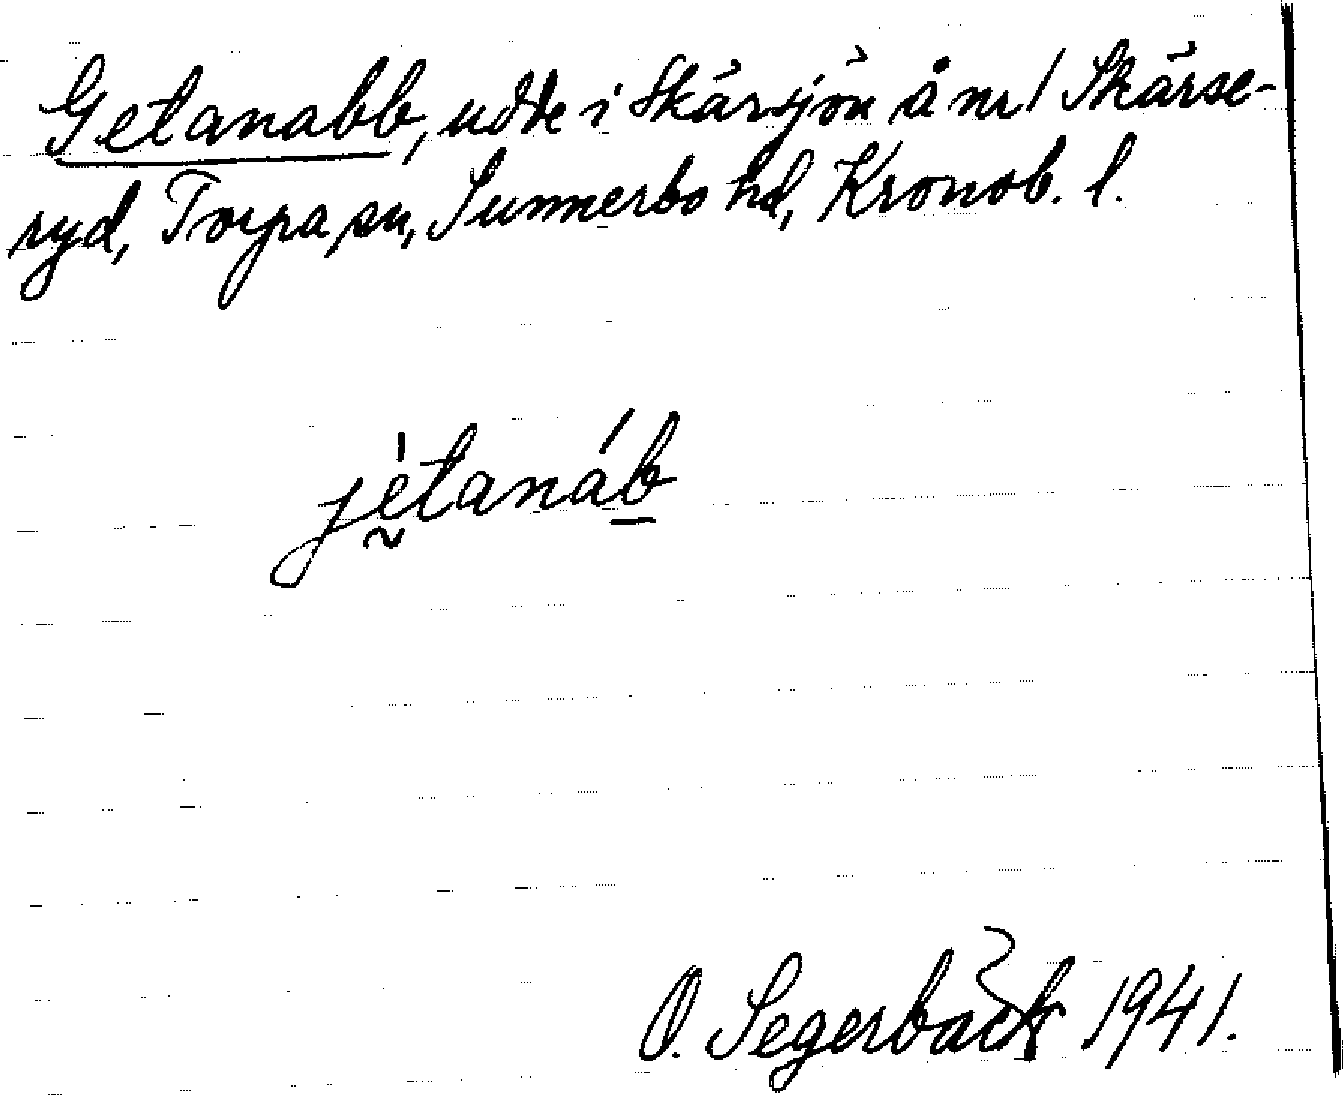 Getanabb, udde i Skärsjön å nr 1 Skärse-
ryd, Torpa sn, Sunnerbo hd, Kronob. l.
jètanáb
O. Segerbäck 1941.